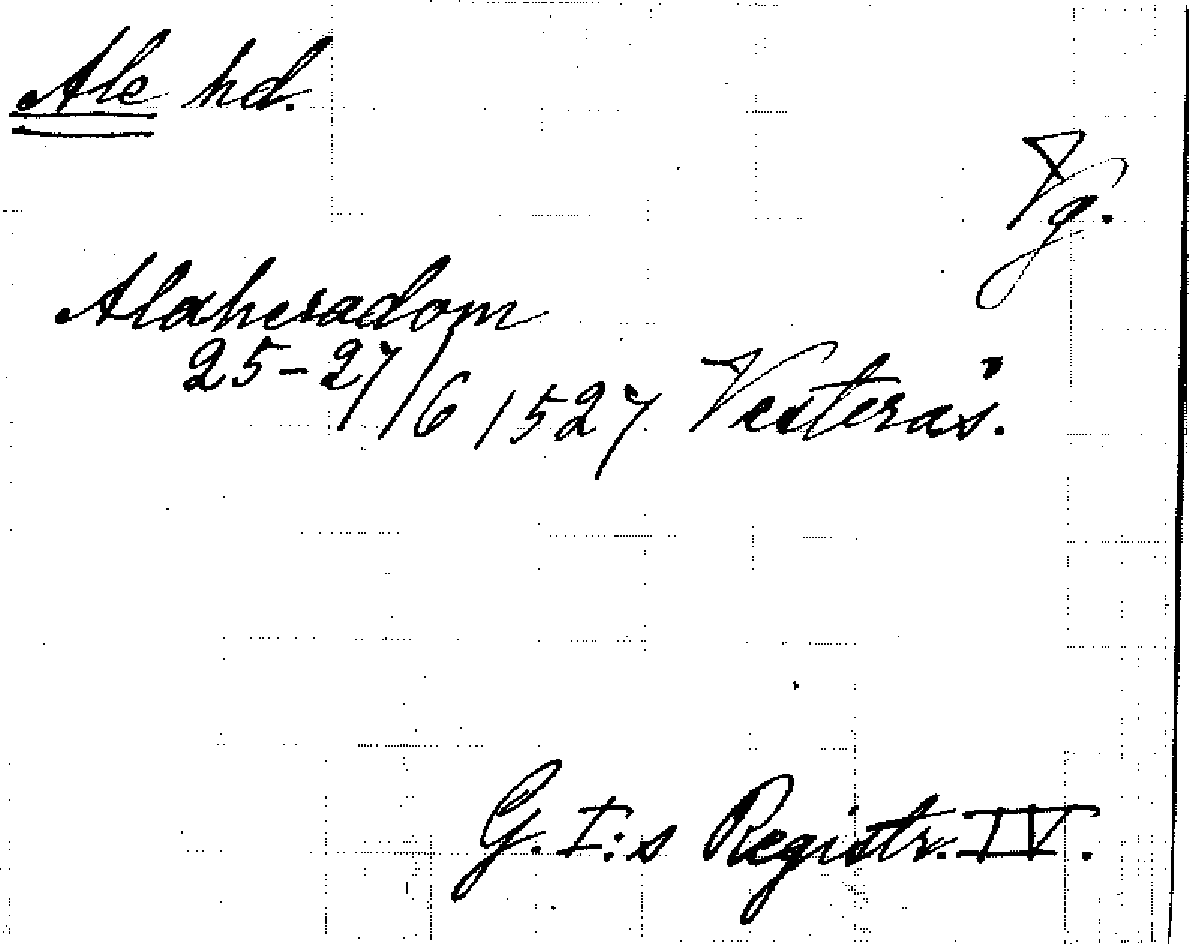 Ale hd.
Vg.
Alaheradom
25-27/6 1527 Vesterås.
G. I:s Registr. IV.